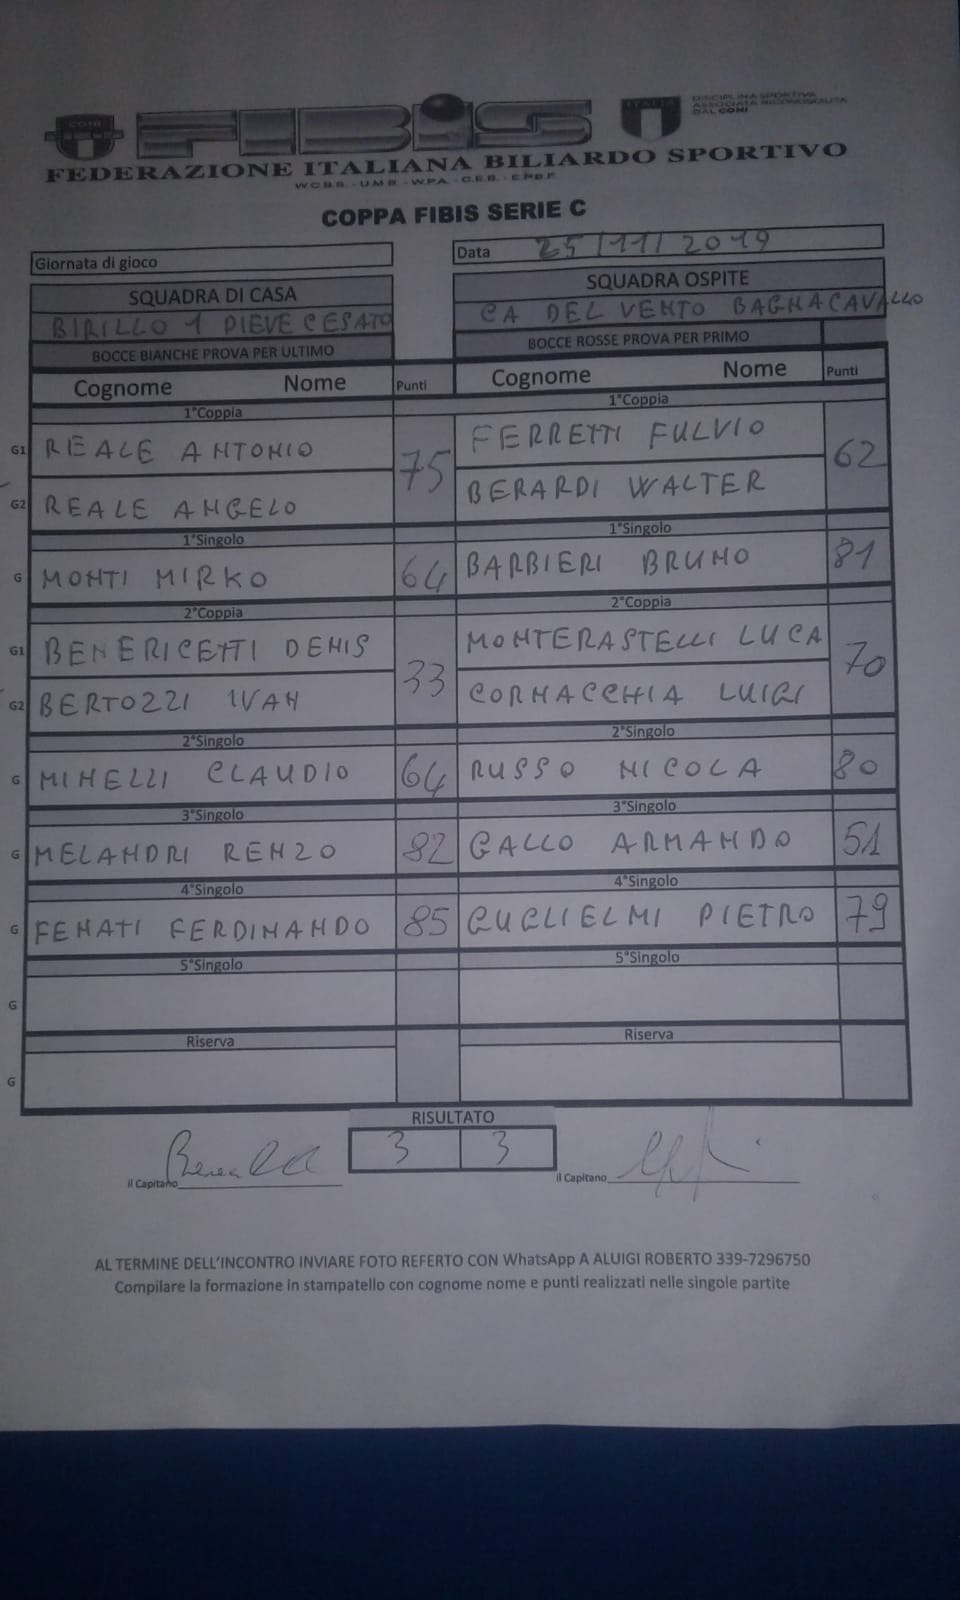 CONI
FIBIS
ITALIA
DISCIPLINA SPORTIVA
ASSOCIATA RICONOSCIUTA
DAL CONI
FEDERAZIONE ITALIANA BILIARDO SPORTIVO
W.C.B.S. - U.M.B. - W.P.A. - C.E.B. - E.P.B.F.
COPPA FIBIS SERIE C
Giornata di gioco
Data 25/11/2019
SQUADRA DI CASA
SQUADRA OSPITE
BIRILLO 1 PIEVE CESATO
CA DEL VENTO BAGNACAVALLO
BOCCE BIANCHE PROVA PER ULTIMO
BOCCE ROSSE PROVA PER PRIMO
Cognome Nome Punti Cognome Nome Punti
1°Coppia 1°Coppia
G1 REALE ANTONIO 75 FERRETTI FULVIO 62
G2 REALE ANGELO BERARDI WALTER
1°Singolo 1°Singolo
G MONTI MIRKO 64 BARBIERI BRUNO 81
2°Coppia 2°Coppia
G1 BENERICETTI DENIS 33 MONTERASTELLI LUCA 70
G2 BERTOZZI IVAN CORNACCHIA LUIGI
2°Singolo 2°Singolo
G MINELLI CLAUDIO 64 RUSSO NICOLA 80
3°Singolo 3°Singolo
G MELANDRI RENZO 82 GALLO ARMANDO 51
4°Singolo 4°Singolo
G FENATI FERDINANDO 85 GUGLIELMI PIETRO 79
5°Singolo 5°Singolo
G
Riserva Riserva
G
RISULTATO
3 3
il Capitano il Capitano
AL TERMINE DELL'INCONTRO INVIARE FOTO REFERTO CON WhatsApp A ALUIGI ROBERTO 339-7296750
Compilare la formazione in stampatello con cognome nome e punti realizzati nelle singole partite